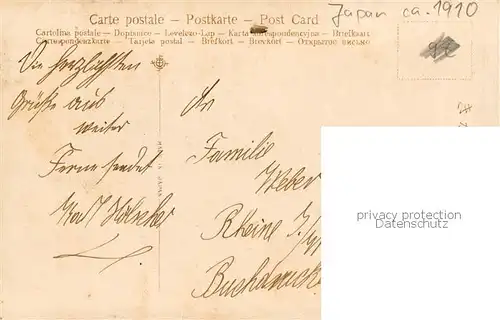 Japan ca. 1910
Carte postale – Postkarte – Post Card
Cartolina postale – Dopisnice – Levelezo-Lap – Karta Korespondencyjna – Briefkaart
Correspondenzkarte – Tarjeta postal – Brefkort – Brevkort – Открытое письмо
Die herzlichsten
Grüße aus
weiter
Ferne sendet
An
Familie
Weber
Rheine
privacy protection
Datenschutz